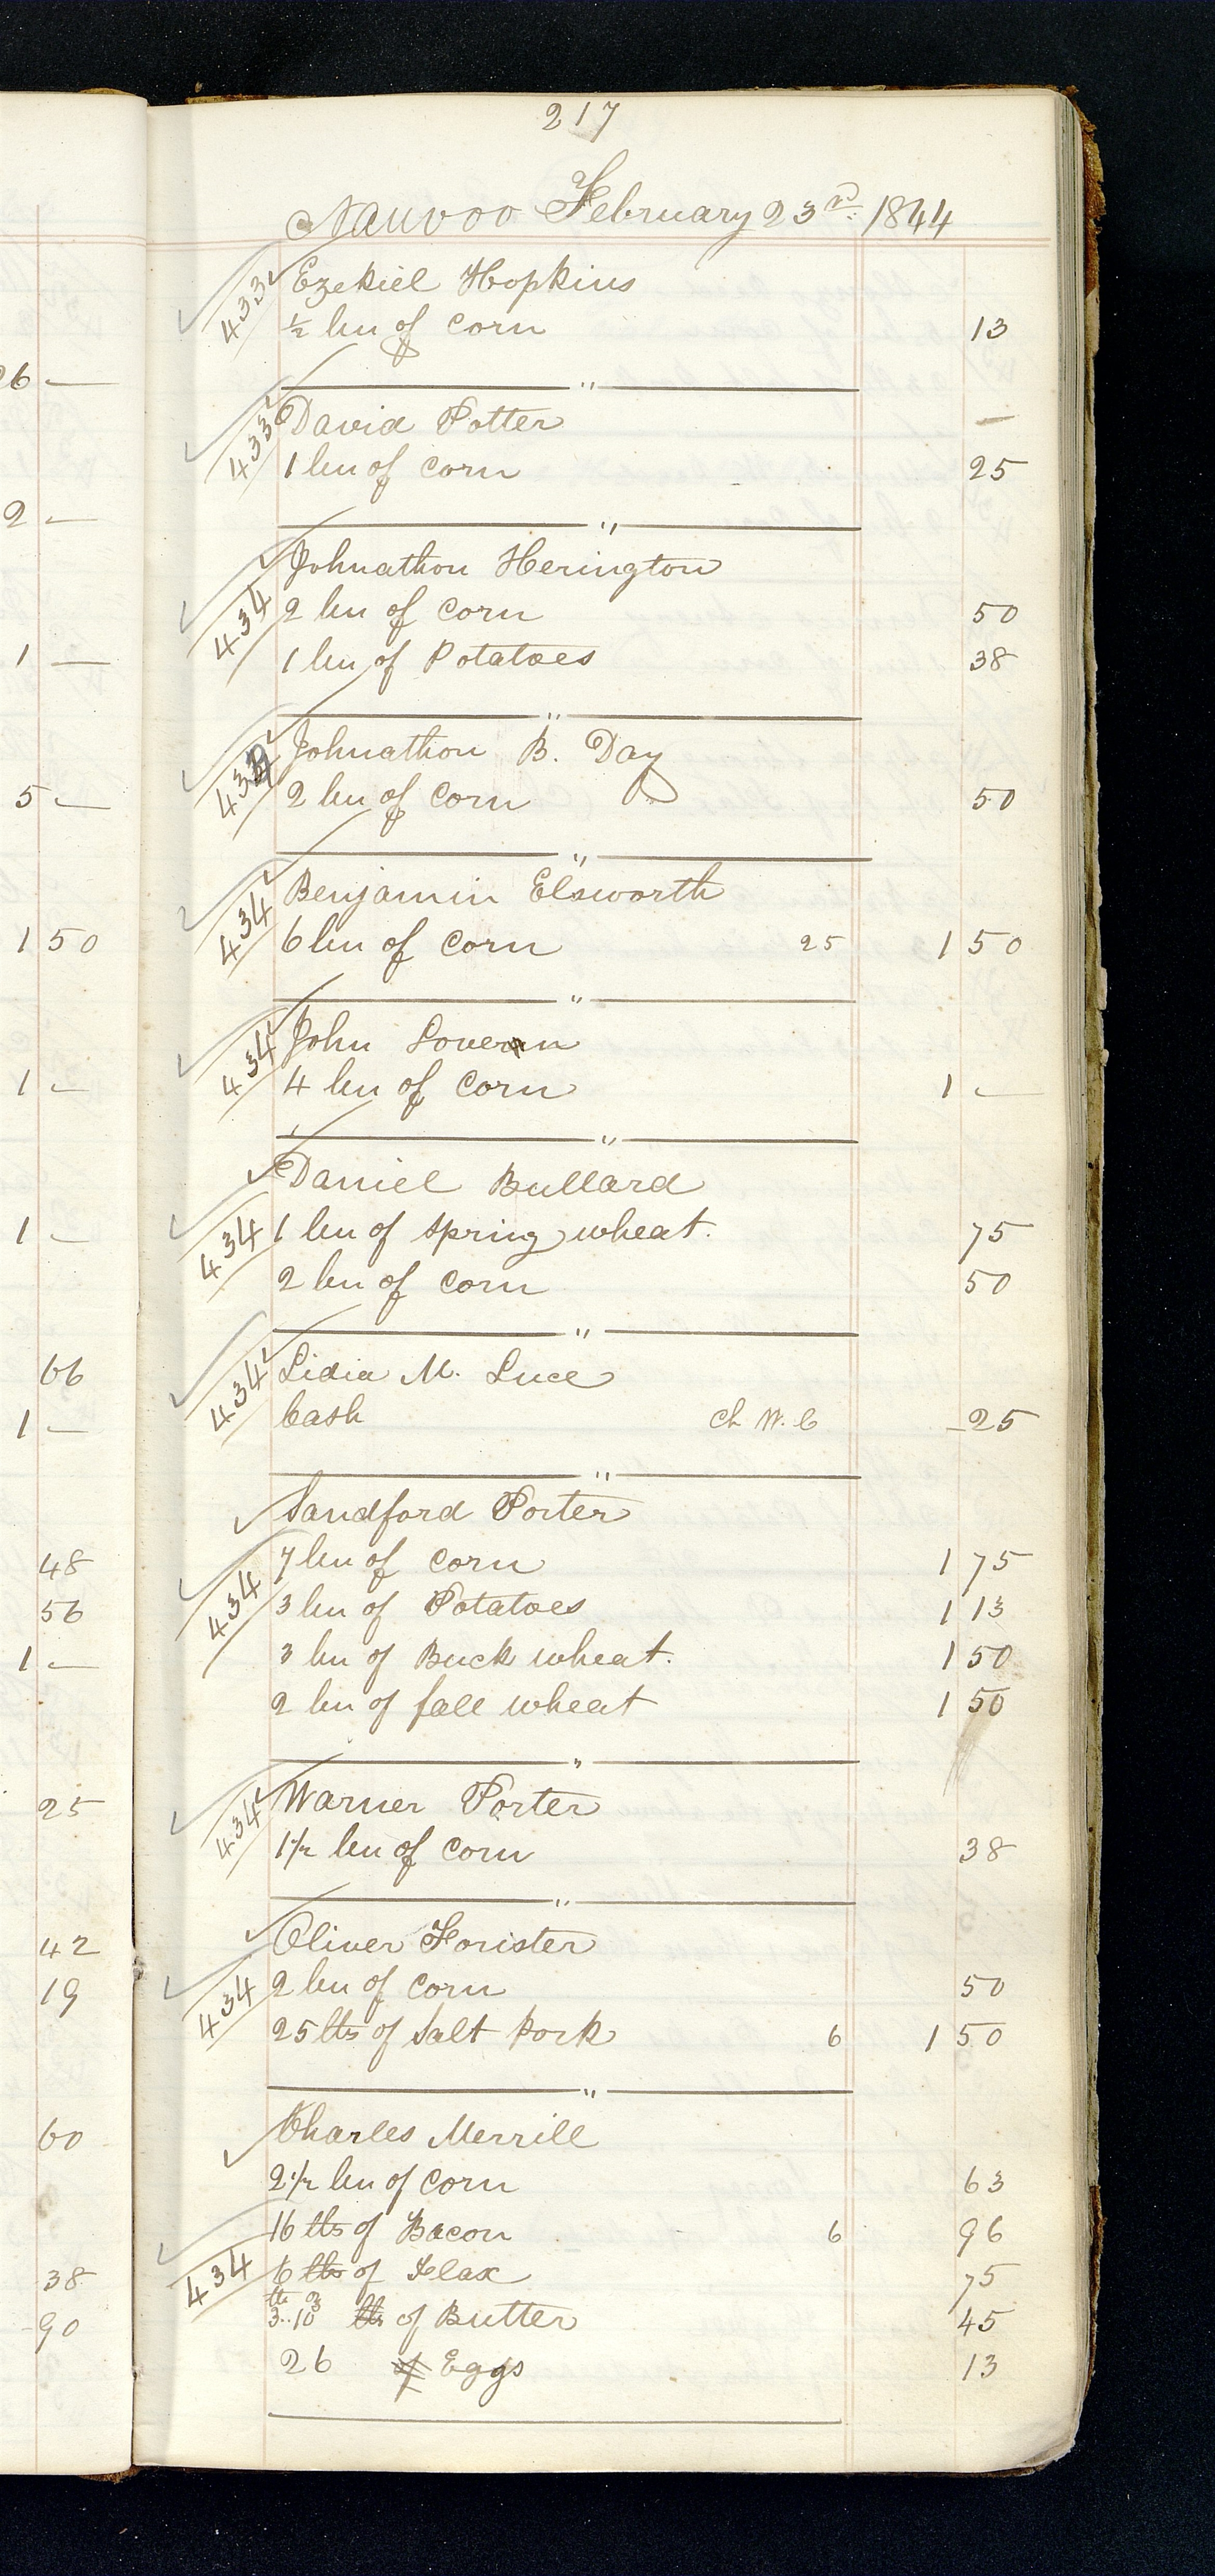 217
Nauvoo February 23rd. 1844
433 Ezekiel Hopkins
½ bu of corn 13
"
433 David Potter -
1 bu of corn 25
"
434 Johnathon Herington
2 bu of corn 50
1 bu of Potatoes 38
"
Johnathon B. Day
2 bu of corn 50
"
434 Benjamin Elsworth
6 bu of corn 25 1 50
"
434 John
4 bu of corn 1 —
"
Daniel Bullard
434 1 bu of spring wheat. 75
2 bu of corn 50
"
434 Lidia M. Luce
Cash Ch W. C 25
"
Sandford Porter
434 7 bu of corn 1 75
3 bu of Potatoes 1 13
3 bu of Buck wheat. 1 50
2 bu of fall wheat 1 50
"
434 Warner Porter
1½ bu of corn 38
"
Oliver Forister
434 2 bu of corn 50
25 lbs of Salt Pork 6 1 50
"
Charles Merrill
2½ bu of corn 63
16 lbs of Bacon 6 96
434 6 lbs of Flax 75
lb oz
3..10 lbs of Butter 45
26 of Eggs 13
26 —
2 —
1 —
5 —
1 50
1 —
1 —
66
1 —
48
56
1 —
25
42
19
60
38
90